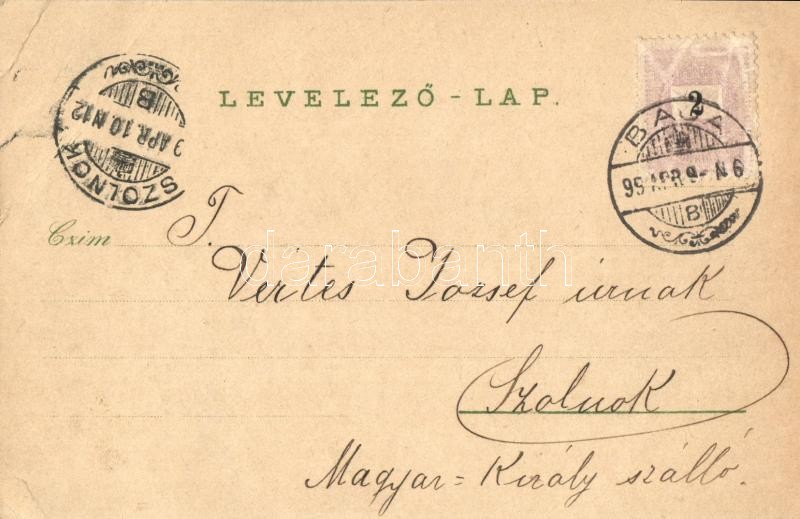 LEVELEZŐ-LAP.
2
BAJA
99 APR 9- N 6
B
SZOLNOK
9 APR. 10. N12
B
Czim
T.
Vértes József úrnak
Szolnok
Magyar=Király szálló.
darabanth